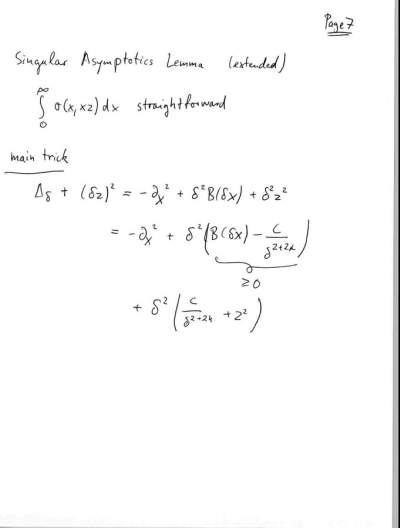 Page 7
Singular Asymptotics Lemma (extended)
∫₀^∞ σ(x, xz) dx straightforward
main trick
Δ_δ + (δz)² = -∂_x² + δ²B(δx) + δ²z²
= -∂_x² + δ²(B(δx) - C/δ^{2+2α})
≥0
+ δ²(C/δ^{2+2α} + z²)